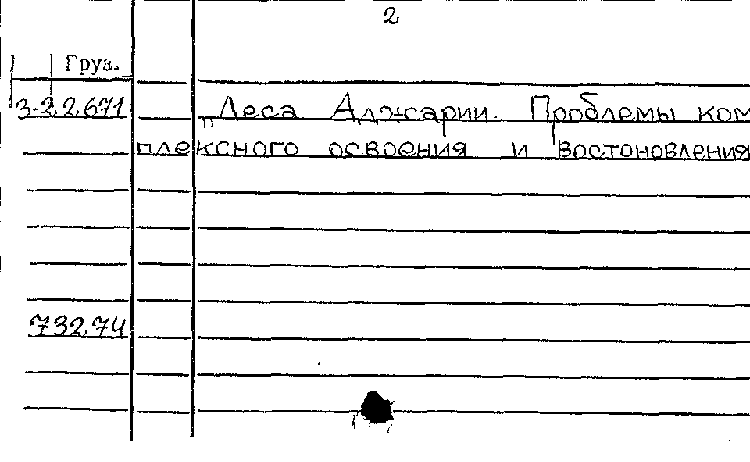 2
Груз.
3-22.671 „Леса Аджарии. Проблемы ком
плексного освоения и востоновления
732.74